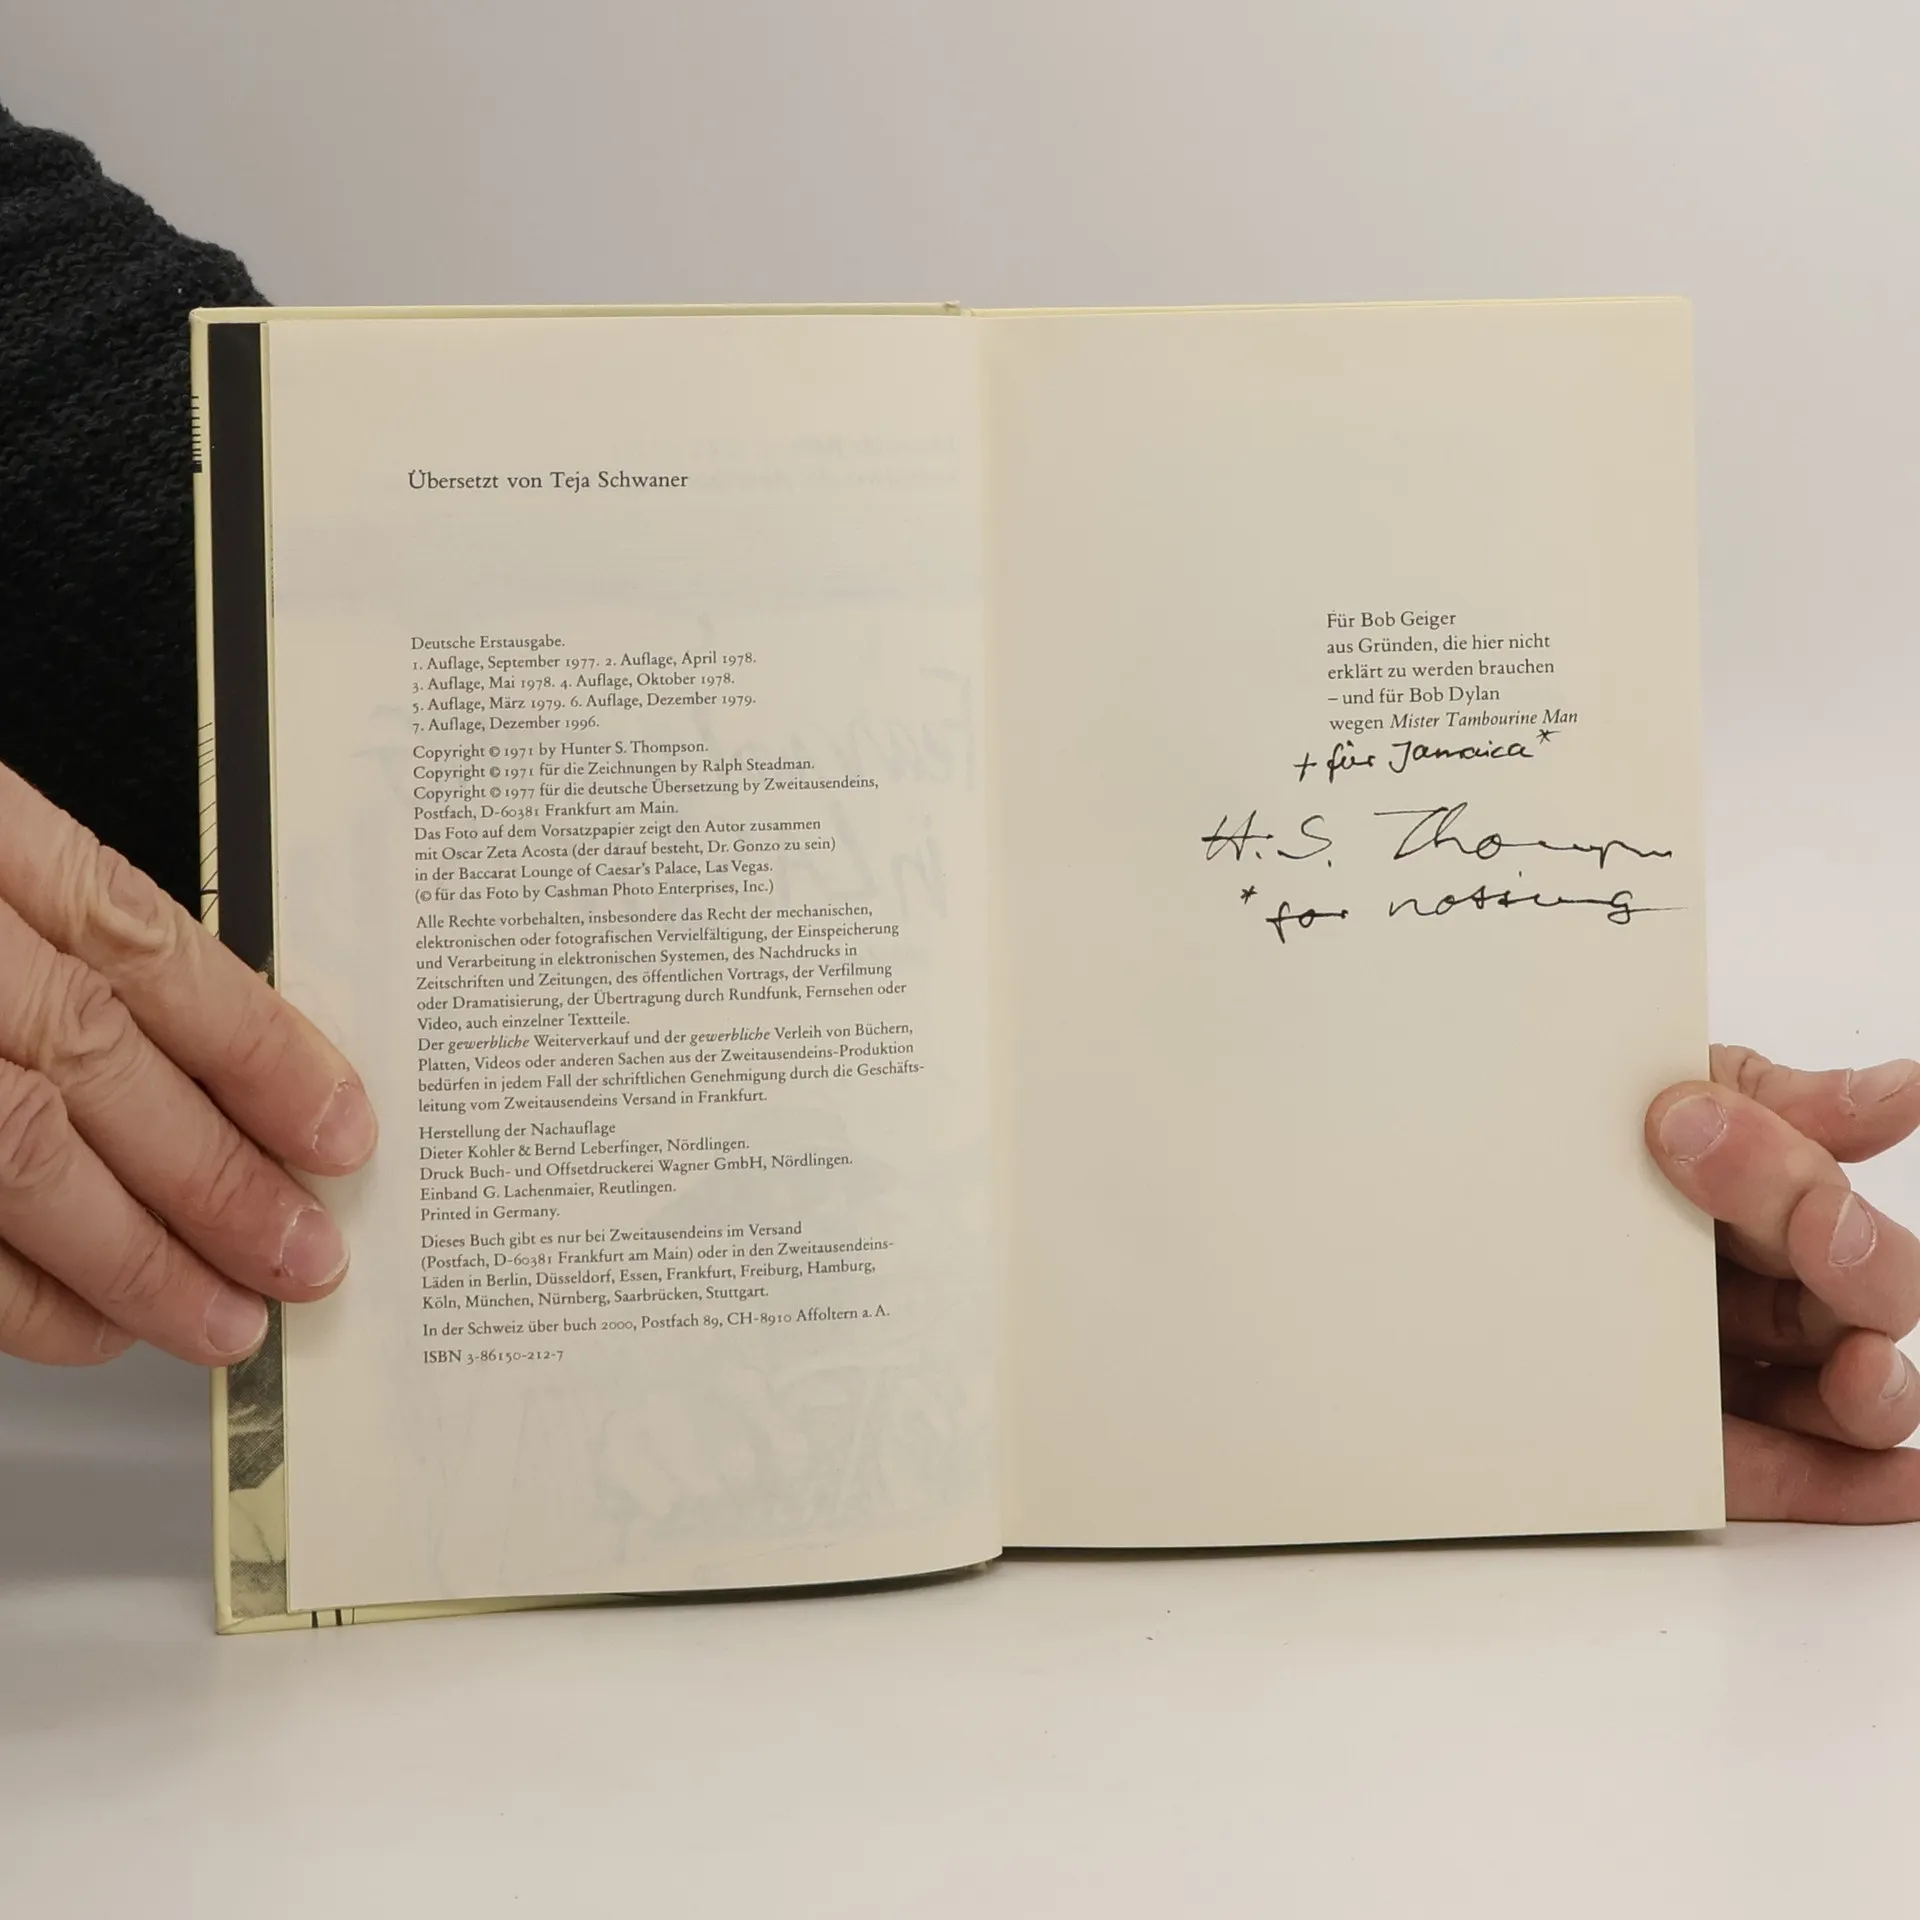 Übersetzt von Teja Schwaner
Deutsche Erstausgabe.
1. Auflage, September 1977. 2. Auflage, April 1978.
3. Auflage, Mai 1978. 4. Auflage, Oktober 1978.
5. Auflage, März 1979. 6. Auflage, Dezember 1979.
7. Auflage, Dezember 1996.
Copyright © 1971 by Hunter S. Thompson.
Copyright © 1971 für die Zeichnungen by Ralph Steadman.
Copyright © 1977 für die deutsche Übersetzung by Zweitausendeins,
Postfach, D-60381 Frankfurt am Main.
Das Foto auf dem Vorsatzpapier zeigt den Autor zusammen
mit Oscar Zeta Acosta (der darauf besteht, Dr. Gonzo zu sein)
in der Baccarat Lounge of Caesar's Palace, Las Vegas.
(© für das Foto by Cashman Photo Enterprises, Inc.)
Alle Rechte vorbehalten, insbesondere das Recht der mechanischen,
elektronischen oder fotografischen Vervielfältigung, der Einspeicherung
und Verarbeitung in elektronischen Systemen, des Nachdrucks in
Zeitschriften und Zeitungen, des öffentlichen Vortrags, der Verfilmung
oder Dramatisierung, der Übertragung durch Rundfunk, Fernsehen oder
Video, auch einzelner Textteile.
Der gewerbliche Weiterverkauf und der gewerbliche Verleih von Büchern,
Platten, Videos oder anderen Sachen aus der Zweitausendeins-Produktion
bedürfen in jedem Fall der schriftlichen Genehmigung durch die Geschäfts-
leitung vom Zweitausendeins Versand in Frankfurt.
Herstellung der Nachauflage
Dieter Kohler & Bernd Leberfinger, Nördlingen.
Druck Buch- und Offsetdruckerei Wagner GmbH, Nördlingen.
Einband G. Lachenmaier, Reutlingen.
Printed in Germany.
Dieses Buch gibt es nur bei Zweitausendeins im Versand
(Postfach, D-60381 Frankfurt am Main) oder in den Zweitausendeins-
Läden in Berlin, Düsseldorf, Essen, Frankfurt, Freiburg, Hamburg,
Köln, München, Nürnberg, Saarbrücken, Stuttgart.
In der Schweiz über buch 2000, Postfach 89, CH-8910 Affoltern a. A.
ISBN 3-86150-212-7
Für Bob Geiger
aus Gründen, die hier nicht
erklärt zu werden brauchen
– und für Bob Dylan
wegen Mister Tambourine Man
+ für Jamaica*
H. S. Thompson
* for